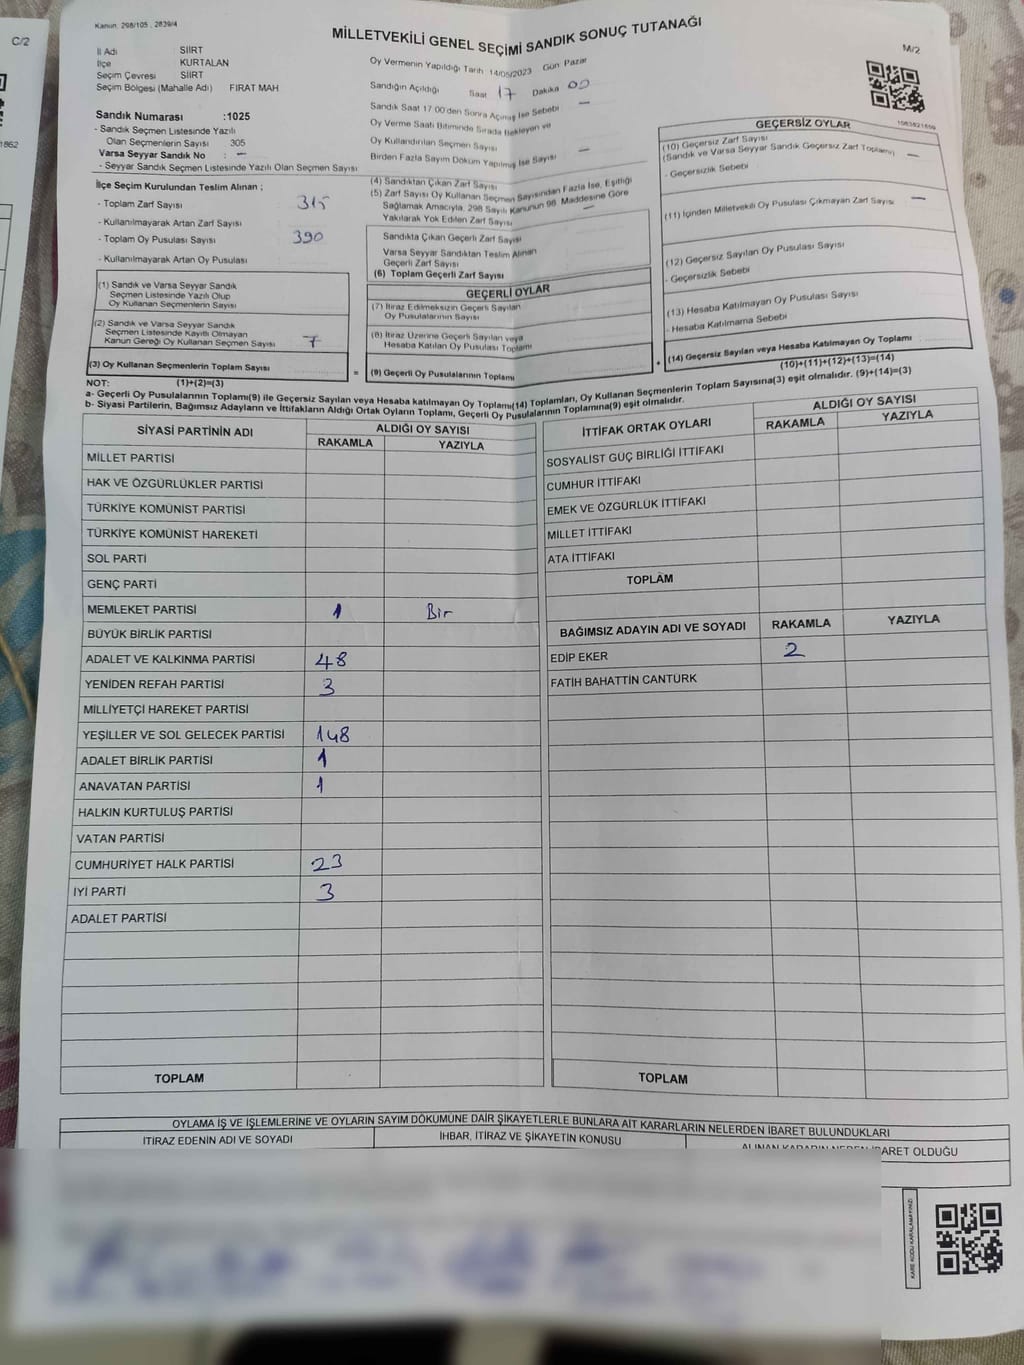 Kanun. 298/105 , 2839/4
MİLLETVEKİLİ GENEL SEÇİMİ SANDIK SONUÇ TUTANAĞI
C/2
M/2
İl Adı SİİRT
İlçe KURTALAN
Seçim Çevresi SİİRT
Seçim Bölgesi (Mahalle Adı) FIRAT MAH
Sandık Numarası :1025
- Sandık Seçmen Listesinde Yazılı
Olan Seçmenlerin Sayısı 305
Varsa Seyyar Sandık No : -
- Seyyar Sandık Seçmen Listesinde Yazılı Olan Seçmen Sayısı
Oy Vermenin Yapıldığı Tarih 14/05/2023 Gün Pazar
Sandığın Açıldığı Saat 17 Dakika 00
Sandık Saat 17.00'den Sonra Açılmış İse Sebebi -
Oy Verme Saati Bitiminde Sırada Bekleyen ve
Oy Kullandırılan Seçmen Sayısı
Birden Fazla Sayım Döküm Yapılmış İse Sayısı -
İlçe Seçim Kurulundan Teslim Alınan ;
- Toplam Zarf Sayısı 315
- Kullanılmayarak Artan Zarf Sayısı
- Toplam Oy Pusulası Sayısı 390
- Kullanılmayarak Artan Oy Pusulası
(1) Sandık ve Varsa Seyyar Sandık
Seçmen Listesinde Yazılı Olup
Oy Kullanan Seçmenlerin Sayısı
(2) Sandık ve Varsa Seyyar Sandık
Seçmen Listesinde Kayıtlı Olmayan
Kanun Gereği Oy Kullanan Seçmen Sayısı 7
(3) Oy Kullanan Seçmenlerin Toplam Sayısı
(4) Sandıktan Çıkan Zarf Sayısı
(5) Zarf Sayısı Oy Kullanan Seçmen Sayısından Fazla İse, Eşitliği
Sağlamak Amacıyla, 298 Sayılı Kanunun 98. Maddesine Göre
Yakılarak Yok Edilen Zarf Sayısı -
Sandıkta Çıkan Geçerli Zarf Sayısı
Varsa Seyyar Sandıktan Teslim Alınan
Geçerli Zarf Sayısı
(6) Toplam Geçerli Zarf Sayısı
GEÇERLİ OYLAR
(7) İtiraz Edilmeksizin Geçerli Sayılan
Oy Pusulalarının Sayısı
(8) İtiraz Üzerine Geçerli Sayılan veya
Hesaba Katılan Oy Pusulası Toplamı
= (9) Geçerli Oy Pusulalarının Toplamı
GEÇERSİZ OYLAR
(10) Geçersiz Zarf Sayısı
(Sandık ve Varsa Seyyar Sandık Geçersiz Zarf Toplamı) -
- Geçersizlik Sebebi
(11) İçinden Milletvekili Oy Pusulası Çıkmayan Zarf Sayısı -
(12) Geçersiz Sayılan Oy Pusulası Sayısı
- Geçersizlik Sebebi
(13) Hesaba Katılmayan Oy Pusulası Sayısı
- Hesaba Katılmama Sebebi
+ (14) Geçersiz Sayılan veya Hesaba Katılmayan Oy Toplamı
(10)+(11)+(12)+(13)=(14)
NOT: (1)+(2)=(3)
a- Geçerli Oy Pusulalarının Toplamı(9) ile Geçersiz Sayılan veya Hesaba katılmayan Oy Toplamı(14) Toplamları, Oy Kullanan Seçmenlerin Toplam Sayısına(3) eşit olmalıdır. (9)+(14)=(3)
b- Siyasi Partilerin, Bağımsız Adayların ve İttifakların Aldığı Ortak Oyların Toplamı, Geçerli Oy Pusulalarının Toplamına(9) eşit olmalıdır.
SİYASİ PARTİNİN ADI ALDIĞI OY SAYISI
RAKAMLA YAZIYLA
MİLLET PARTİSİ
HAK VE ÖZGÜRLÜKLER PARTİSİ
TÜRKİYE KOMÜNİST PARTİSİ
TÜRKİYE KOMÜNİST HAREKETİ
SOL PARTİ
GENÇ PARTİ
MEMLEKET PARTİSİ 1 Bir
BÜYÜK BİRLİK PARTİSİ
ADALET VE KALKINMA PARTİSİ 48
YENİDEN REFAH PARTİSİ 3
MİLLİYETÇİ HAREKET PARTİSİ
YEŞİLLER VE SOL GELECEK PARTİSİ 148
ADALET BİRLİK PARTİSİ 1
ANAVATAN PARTİSİ 1
HALKIN KURTULUŞ PARTİSİ
VATAN PARTİSİ
CUMHURİYET HALK PARTİSİ 23
İYİ PARTİ 3
ADALET PARTİSİ
TOPLAM
İTTİFAK ORTAK OYLARI ALDIĞI OY SAYISI
RAKAMLA YAZIYLA
SOSYALİST GÜÇ BİRLİĞİ İTTİFAKI
CUMHUR İTTİFAKI
EMEK VE ÖZGÜRLÜK İTTİFAKI
MİLLET İTTİFAKI
ATA İTTİFAKI
TOPLAM
BAĞIMSIZ ADAYIN ADI VE SOYADI RAKAMLA YAZIYLA
EDİP EKER 2
FATİH BAHATTİN CANTÜRK
TOPLAM
OYLAMA İŞ VE İŞLEMLERİNE VE OYLARIN SAYIM DÖKÜMÜNE DAİR ŞİKAYETLERLE BUNLARA AİT KARARLARIN NELERDEN İBARET BULUNDUKLARI
İTİRAZ EDENİN ADI VE SOYADI İHBAR, İTİRAZ VE ŞİKAYETİN KONUSU ALINAN KARARIN NEDEN İBARET OLDUĞU
KARE KODU KARALAMAYINIZ!